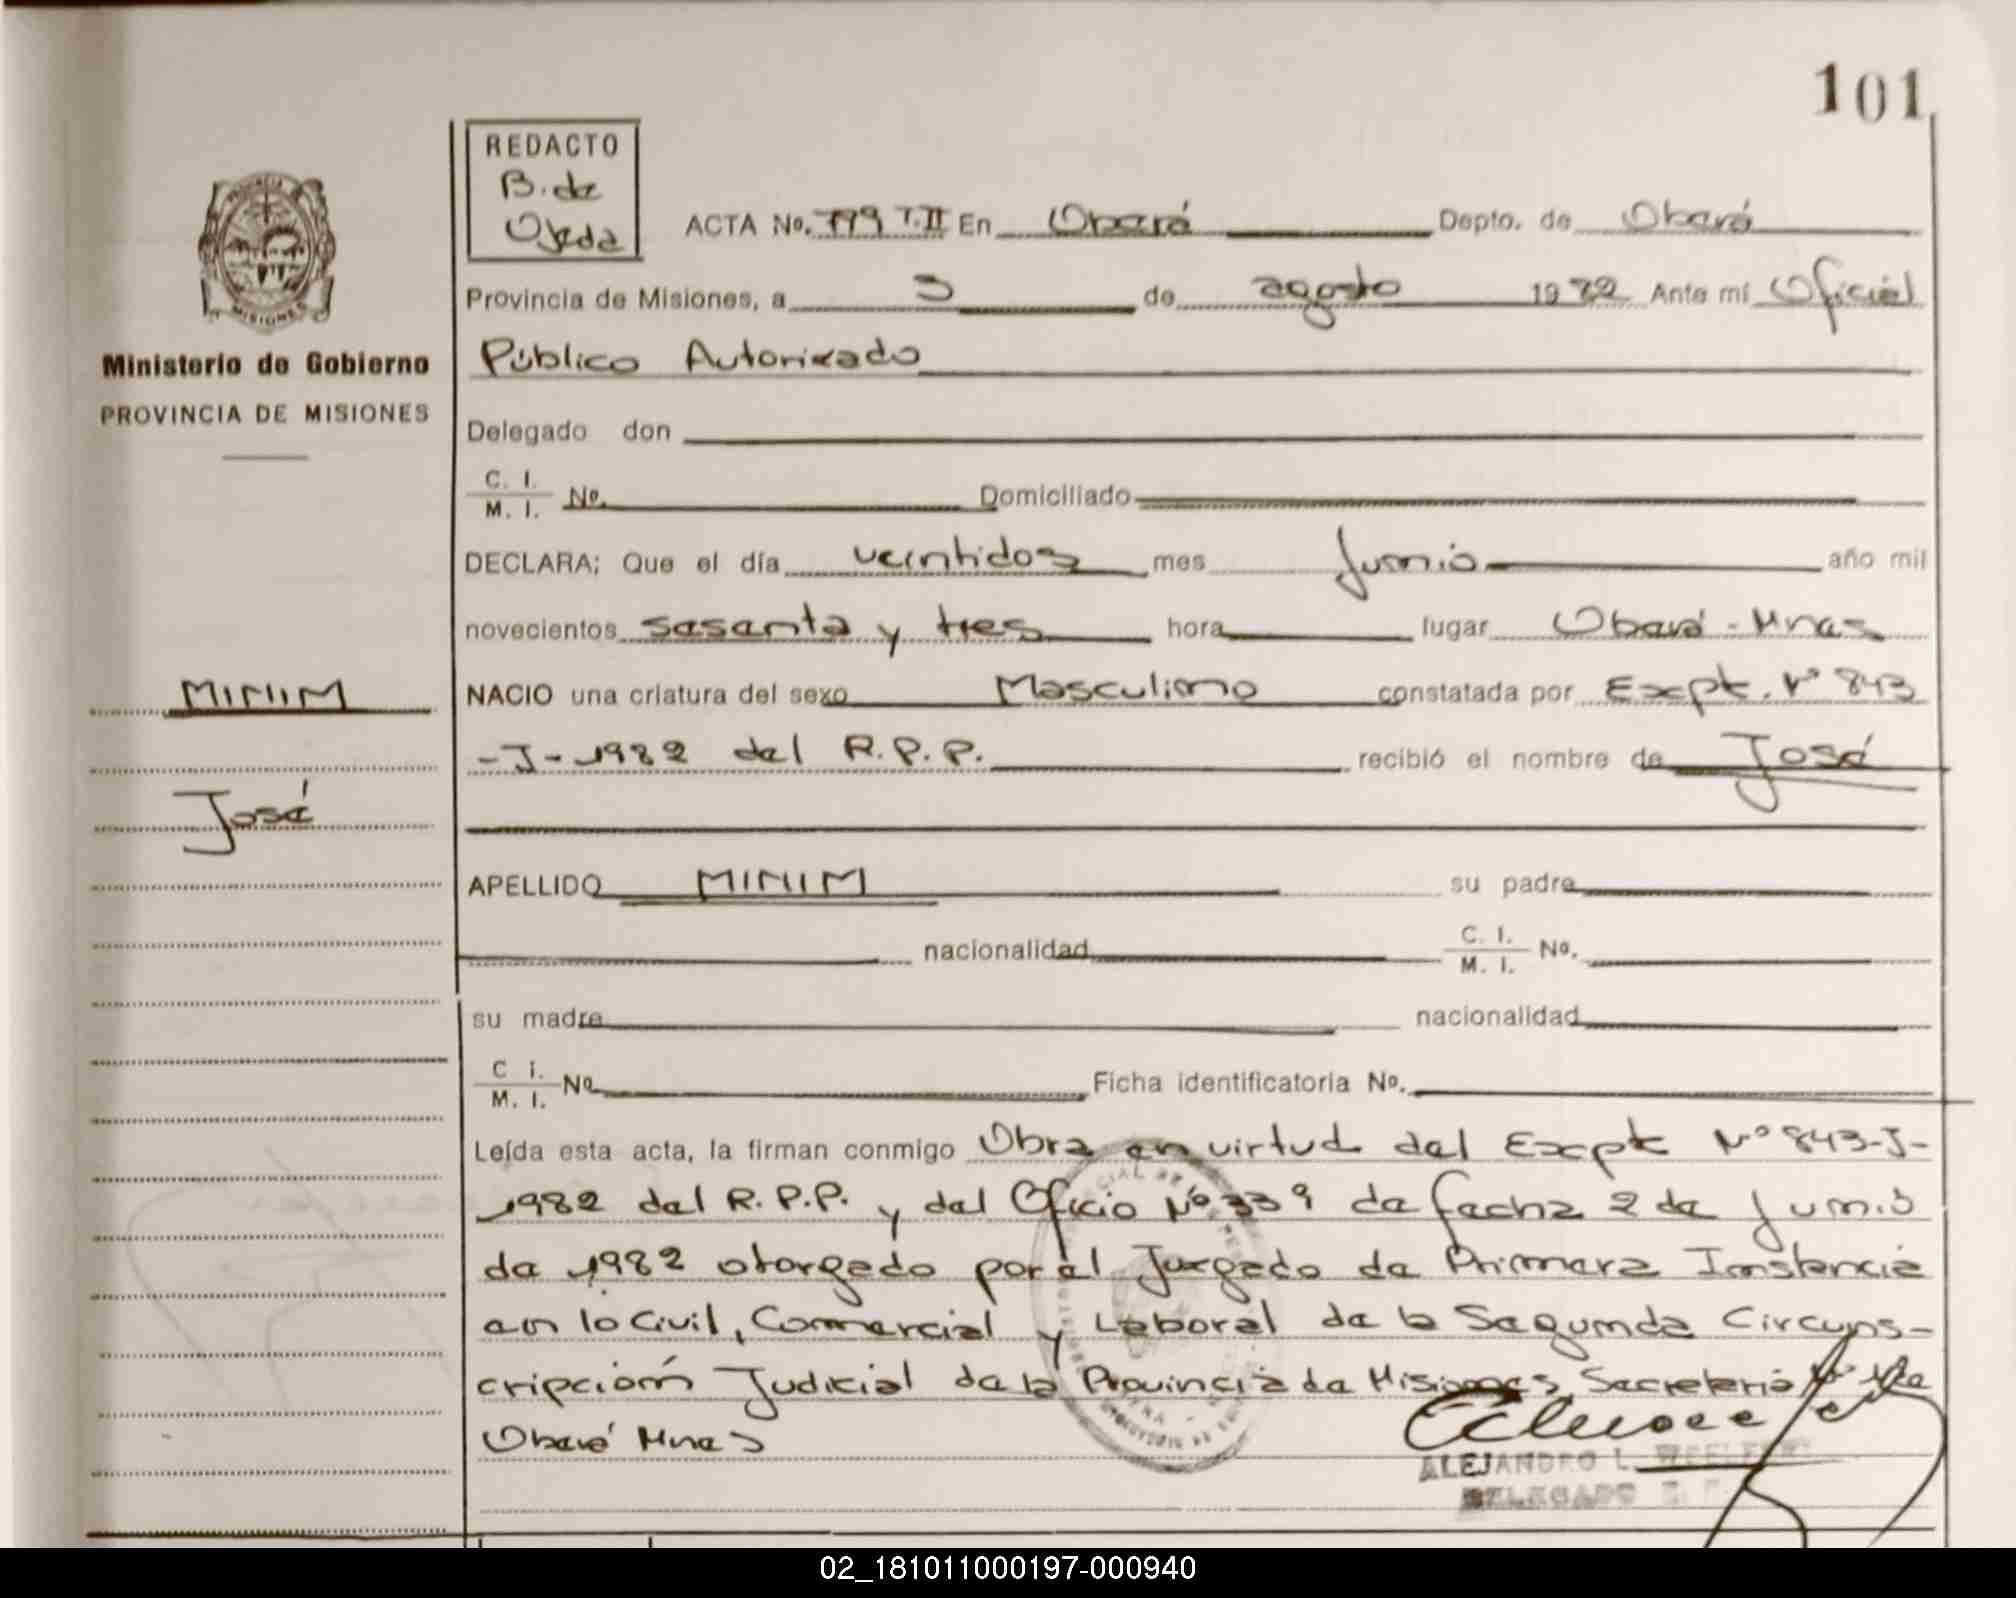 101
REDACTO
B. de
Ojeda
ACTA No. 799 T.II En Oberá Depto. de Oberá
Provincia de Misiones, a 3 de agosto 1982 Ante mí Oficial
Público Autorizado
Ministerio de Gobierno
PROVINCIA DE MISIONES
Delegado don
C. I.
M. I. No. Domiciliado
DECLARA; Que el día veintidos mes Junio año mil
novecientos sesenta y tres hora lugar Oberá - Mnes
MINIM
NACIO una criatura del sexo Masculino constatada por Expte. Nº 843
-J-1982 del R.P.P. recibió el nombre de José
José
APELLIDO MINIM su padre
nacionalidad C. I.
M. I. No.
su madre nacionalidad
C i.
M. I. No Ficha identificatoria No.
Leída esta acta, la firman conmigo Obra en virtud del Expte Nº 843-J-
1982 del R.P.P. y del Oficio Nº 339 de fecha 2 de Junio
de 1982 otorgado por el Juzgado de Primera Instancia
en lo Civil, Comercial y Laboral de la Segunda Circuns-
cripción Judicial de la Provincia de Misiones, Secretaria
Oberá Mnes
ALEJANDRO L.
DELEGADO
02_181011000197-000940